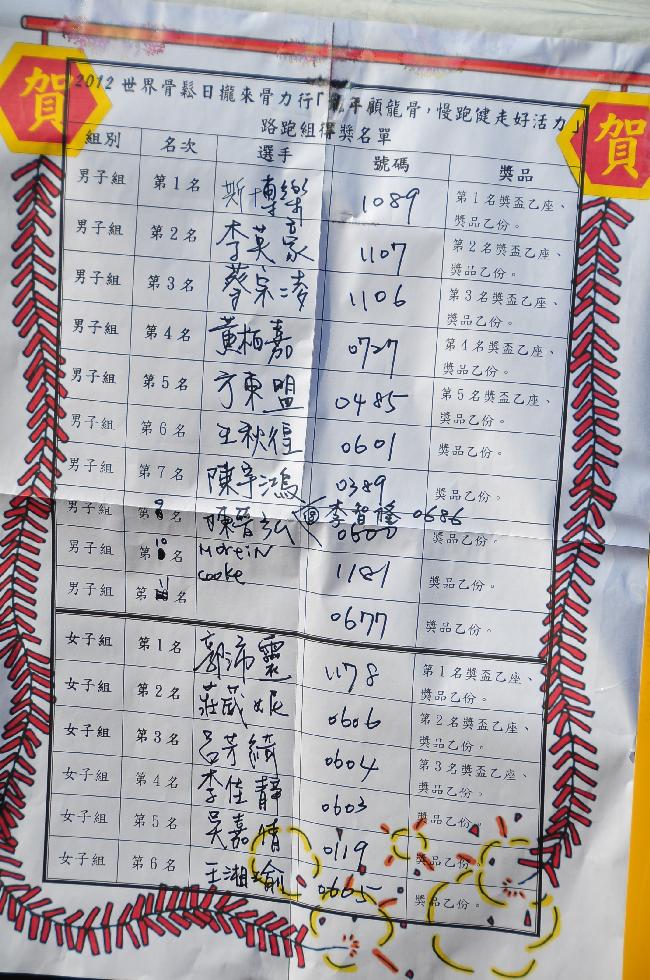 賀
賀
2012 世界骨鬆日攏來骨力行「龍年顧龍骨，慢跑健走好活力」
路跑組得獎名單
組別 名次 選手 號碼 獎品
男子組 第1名 斯博樂 1089 第1名獎盃乙座、
獎品乙份。
男子組 第2名 李英豪 1107 第2名獎盃乙座、
獎品乙份。
男子組 第3名 蔡宗凌 1106 第3名獎盃乙座、
獎品乙份。
男子組 第4名 黃柏嘉 0727 第4名獎盃乙座、
獎品乙份。
男子組 第5名 方東盟 0485 第5名獎盃乙座、
獎品乙份。
男子組 第6名 王秋煌 0601 獎品乙份。
男子組 第7名 陳宇鴻 0389 獎品乙份。
⑧ 李智隆 0686
男子組 第9名 陳晉弘 獎品乙份。
男子組 第10名 Martin 1181 獎品乙份。
cooke
男子組 第11名 0677 獎品乙份。
女子組 第1名 郭沛靈 1178 第1名獎盃乙座、
獎品乙份。
女子組 第2名 莊葳妮 0606 第2名獎盃乙座、
獎品乙份。
女子組 第3名 呂芳綺 0604 第3名獎盃乙座、
獎品乙份。
女子組 第4名 李佳靜 0603 獎品乙份。
女子組 第5名 吳嘉倩 0119 獎品乙份。
女子組 第6名 王湘瑜 0665 獎品乙份。